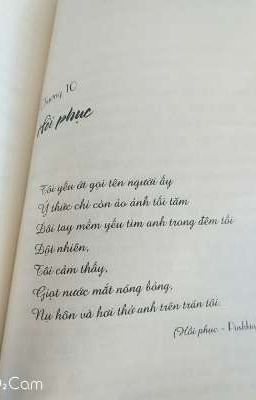 Chương 10
Hồi phục
Tôi yếu ớt gọi tên người ấy
Ý thức chỉ còn ảo ảnh tối tăm
Đôi tay mềm yếu tìm anh trong đêm tối
Đột nhiên,
Tôi cảm thấy,
Giọt nước mắt nóng bỏng,
Nụ hôn và hơi thở anh trên trán tôi.
(Hồi phục -
Cam